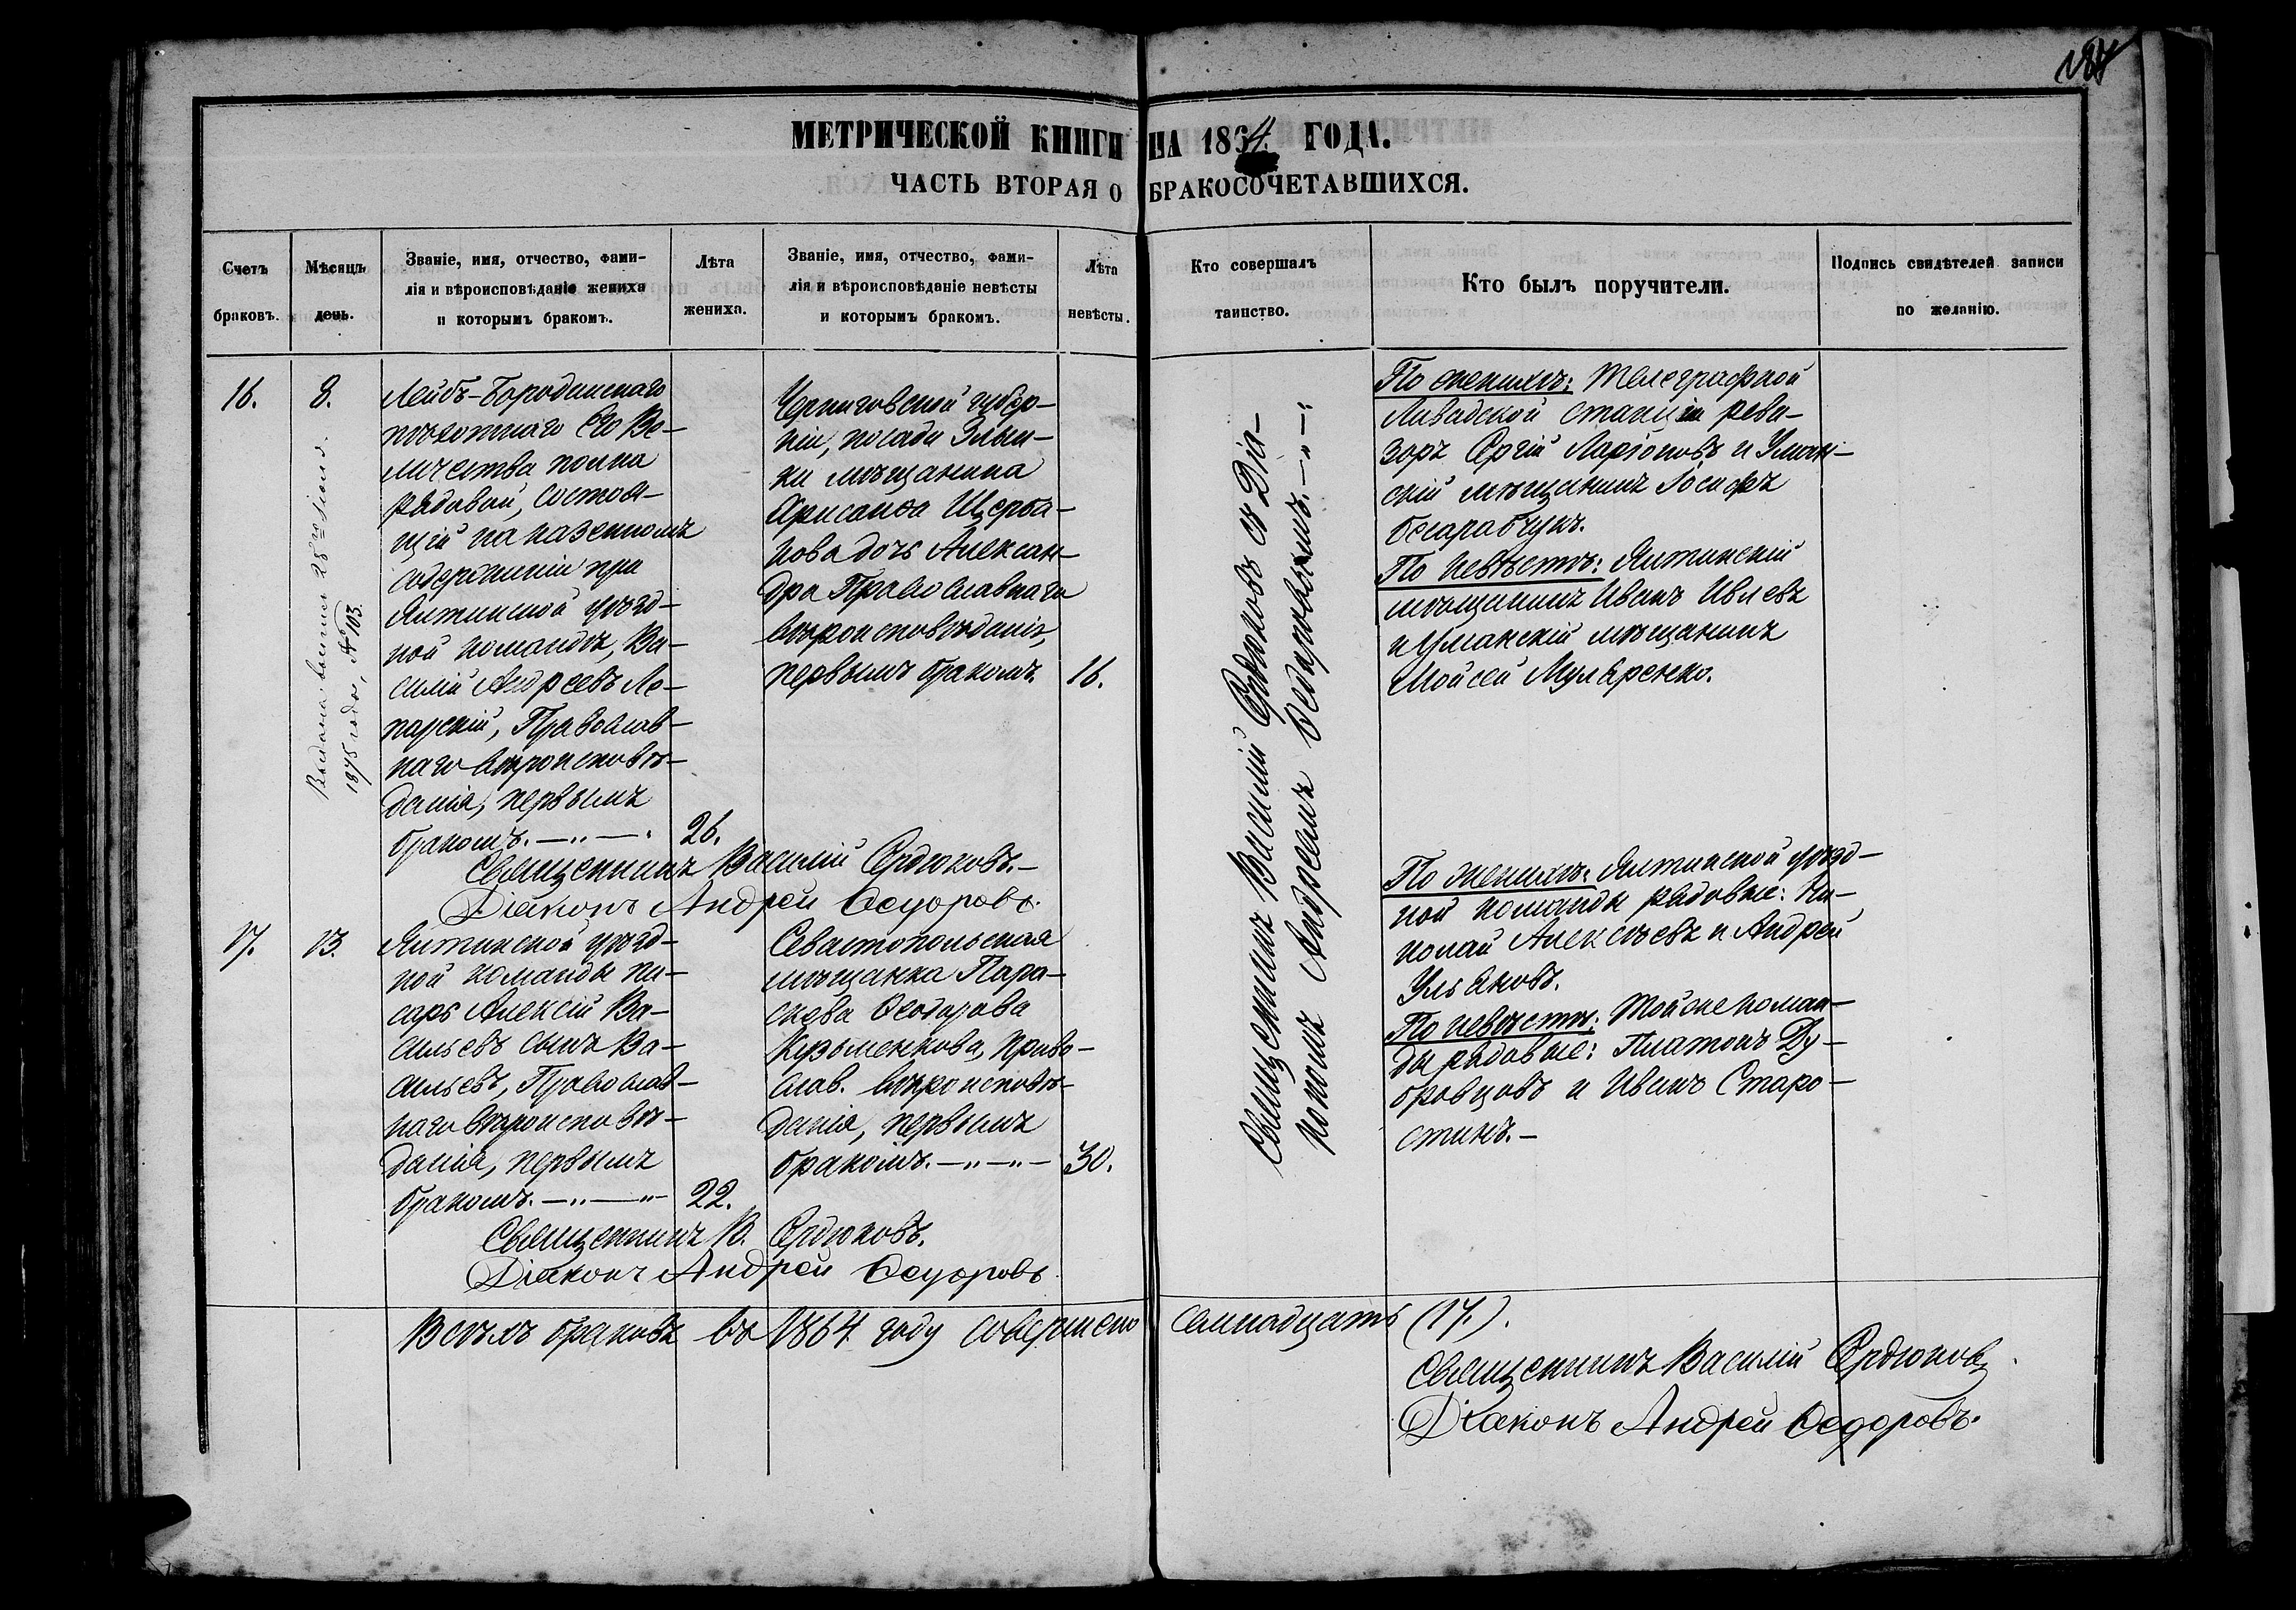 МЕТРИЧЕСКОЙ КНИГИ НА 1864 ГОДА.
ЧАСТЬ ВТОРАЯ О БРАКОСОЧЕТАВШИХСЯ.
Счетъ
браковъ.
Мѣсяцъ
день.
Званіе, имя, отчество, фами-
лія и вѣроисповѣданіе жениха
и которымъ бракомъ.
Лѣта
жениха.
Званіе, имя, отчество, фами-
лія и вѣроисповѣданіе невѣсты
и которымъ бракомъ.
Лѣта
невѣсты.
Кто совершалъ
таинство.
Кто былъ поручители.
Подпись свидѣтелей записи
по желанію.
16.
8.
Выдана выпись 28го іюля
1875 года, № 103.
Лейбъ-Бородинскаго
пѣхотнаго Его Ве-
личества полка
рядовой, состоя-
щій на казенномъ
содержаніи при
Ялтинской уѣзд-
ной командѣ, Ва-
силій Андреевъ Ле-
парскій, Православ-
наго вѣроисповѣ-
данія, первымъ
бракомъ. —„—
26.
Черниговской губер-
ніи, посада Злын-
ки мѣщанина
Щерба-
кова дочь Алексан-
дра Православнаго
вѣроисповѣданія,
первымъ бракомъ.
16.
Священникъ Василій Сердюковъ съ Діа-
кономъ Андреемъ Ѳедоровымъ. —„—
По женихѣ: Телеграфной
Ливадской станціи реви-
зоръ Сергій Ларіоновъ и Уман-
скій мѣщанинъ Іосифъ
Бесарабчукъ.
По невѣстѣ: Ялтинскій
мѣщанинъ Иванъ Ивлевъ
и Уманскій мѣщанинъ
Мойсей Муляренко.
Священникъ Василій Сердюковъ. —
Діаконъ Андрей Ѳедоровъ.
17.
13.
Ялтинской уѣзд-
ной команды пи-
сарь Алексій Ва-
сильевъ сынъ Ва-
сильевъ, Православ-
наго вѣроисповѣ-
данія, первымъ
бракомъ. —„—„
22.
Севастопольская
мѣщанка Пара-
скева Ѳеодорова
Кузьменкова, Право-
слав. вѣроисповѣ-
данія, первымъ
бракомъ. —„—„—
30.
По женихѣ: Ялтинской уѣзд-
ной команды рядовые: Ни-
колай Алексѣевъ и Андрей
Ульяновъ.
По невѣстѣ: Той же коман-
ды рядовые: Платонъ Ду-
бровцовъ и Иванъ Старо-
стинъ. —
Священникъ В. Сердюковъ.
Діаконъ Андрей Ѳедоровъ
Всѣхъ браковъ въ 1864 году совершено семнадцать (17.).
Священникъ Василій Сердюковъ
Діаконъ Андрей Ѳедоровъ.